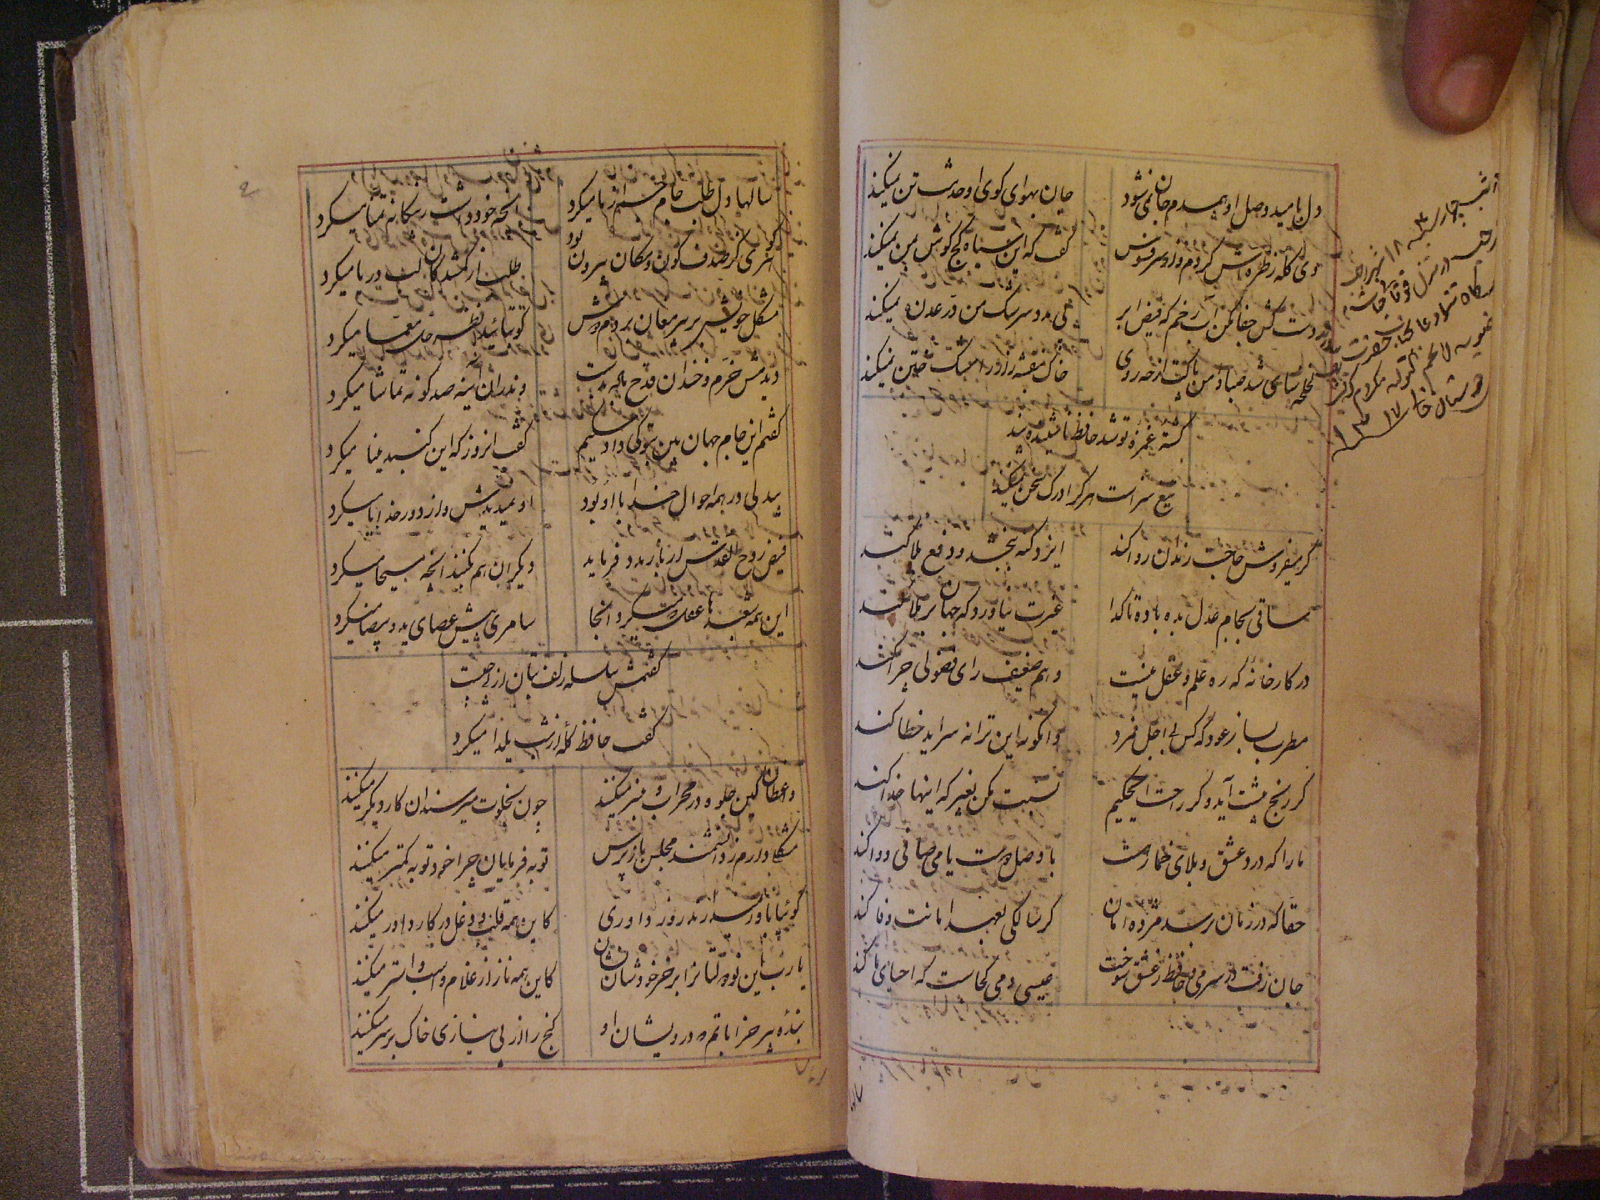 دل بامید وصل او همدم جان نمیشود
جان بهوای کوی او خدمت تن نمیکند
دی گله ز طره اش کردم و از سر فسوس
گفت که این سیاه کج گوش بمن نمیکند
دست کش جفا مکن آب رخم که فیض ابر
بی مدد سرشک من در عدن نمیکند
لخلخه سای شد صبا دامن پاکت از چه روی
خاک بنفشه زار را مشک ختن نمیکند
کشته غمزه تو شد حافظ ناشنیده پند
تیغ سزاست هر کرا درک سخن نمیکند
گر میفروش حاجت رندان روا کند
ایزد گنه ببخشد و دفع بلا کند
ساقی بجام عدل بده باده تا گدا
غیرت نیاورد که جهان پر بلا کند
در کارخانه که ره علم و عقل نیست
وهم ضعیف رای فضولی چرا کند
مطرب بساز عود که کس بی اجل نمرد
وانکو نه این ترانه سراید خطا کند
گر رنج پیشت آید و گر راحت ای حکیم
نسبت مکن بغیر که اینها خدا کند
ما را که درد عشق و بلای خمار هست
یا وصل دوست یا می صافی دوا کند
حقا که در زمان برسد مژده امان
گر سالکی بعهد امانت وفا کند
جان رفت در سر می و حافظ ز عشق سوخت
عیسی دمی کجاست که احیای ما کند
سالها دل طلب جام جم از ما میکرد
آنچه خود داشت ز بیگانه تمنا میکرد
گوهری کز صدف کون و مکان بیرون بود
طلب از گمشدگان لب دریا میکرد
مشکل خویش بر پیر مغان بردم دوش
کو بتأیید نظر حل معما میکرد
دیدمش خرم و خندان قدح باده بدست
وندران آینه صد گونه تماشا میکرد
گفتم این جام جهان بین بتو کی داد حکیم
گفت آنروز که این گنبد مینا میکرد
بیدلی در همه احوال خدا با او بود
او نمیدیدش و از دور خدایا میکرد
فیض روح القدس ار باز مدد فرماید
دیگران هم بکنند آنچه مسیحا میکرد
این همه شعبدها عقل که میکرد آنجا
سامری پیش عصا و ید بیضا میکرد
گفتمش سلسله زلف بتان از پی چیست
گفت حافظ گله از شب یلدا میکرد
واعظان کین جلوه در محراب و منبر میکنند
چون بخلوت میرسند آن کار دیگر میکنند
مشکلی دارم ز دانشمند مجلس باز پرس
توبه فرمایان چرا خود توبه کمتر میکنند
گوئیا باور نمیدارند روز داوری
کاین همه قلب و دغل در کار داور میکنند
یا رب این نو دولتانرا بر خر خودشان نشان
کاین همه ناز از غلام و اسب و استر میکنند
بنده پیر خراباتم که درویشان او
گنج را از بی نیازی خاک بر سر میکنند